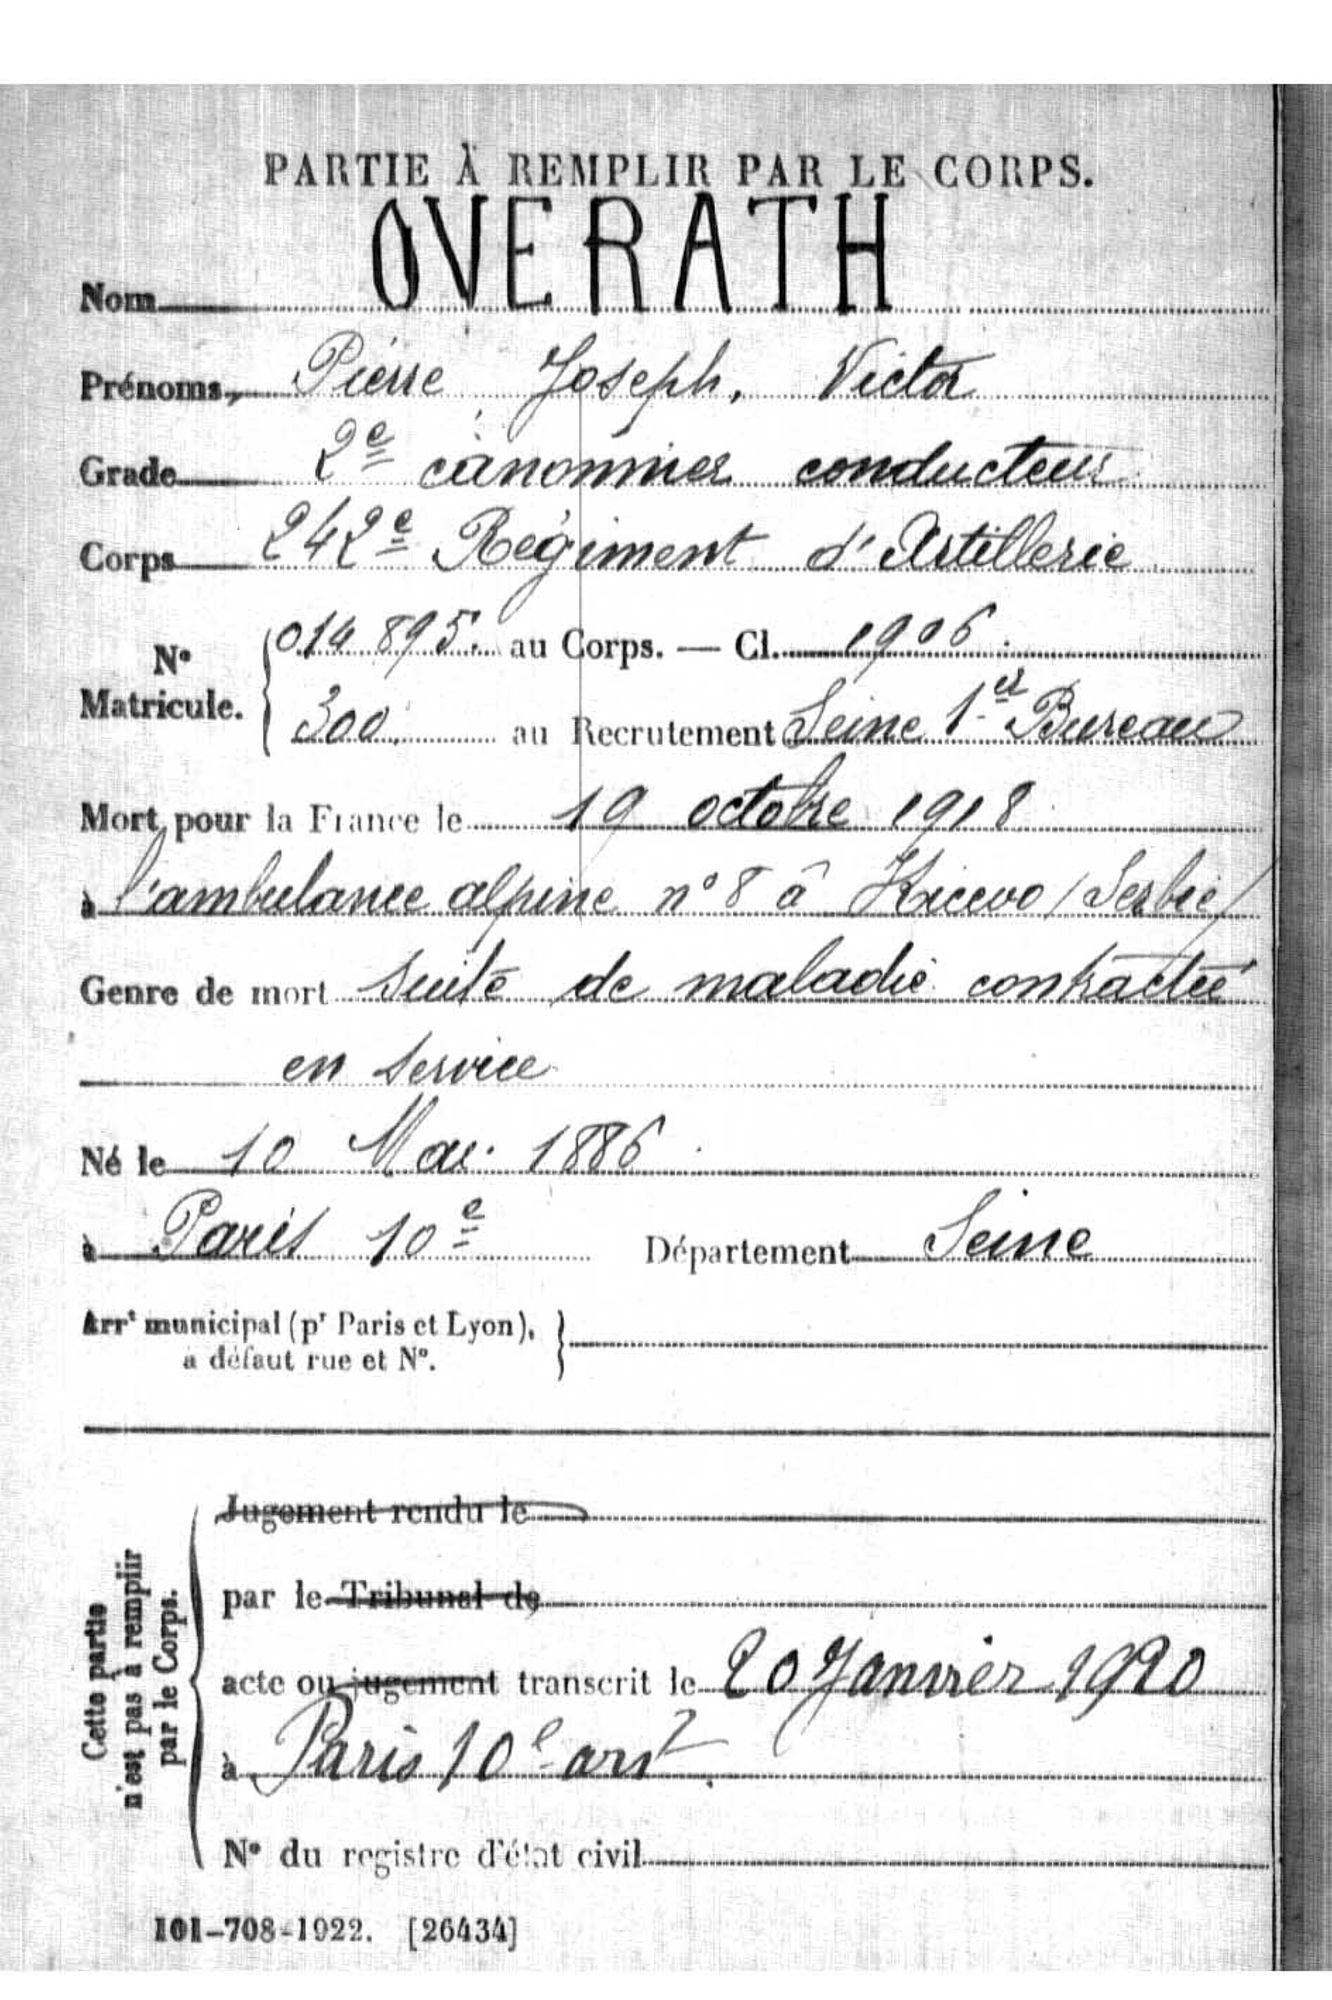 PARTIE À REMPLIR PAR LE CORPS.
Nom OVERATH
Prénoms, Pierre Joseph, Victor
Grade 2e canonnier conducteur
Corps 242e Régiment d'Artillerie
N° Matricule. 014 895. au Corps. — Cl. 1906.
300. au Recrutement Seine 1er Bureau
Mort pour la France le 19 octobre 1918
à l'ambulance alpine n° 8 à Kicevo (Serbie)
Genre de mort suite de maladie contractée
en service
Né le 10 Mai 1886
à Paris 10e Département Seine
Arrt municipal (pr Paris et Lyon),
à défaut rue et N°.
Cette partie
n'est pas à remplir
par le Corps.
Jugement rendu le
par le Tribunal de
acte ou jugement transcrit le 20 Janvier 1920
à Paris 10e arrt
N° du registre d'état civil
101-708-1922. [26434]